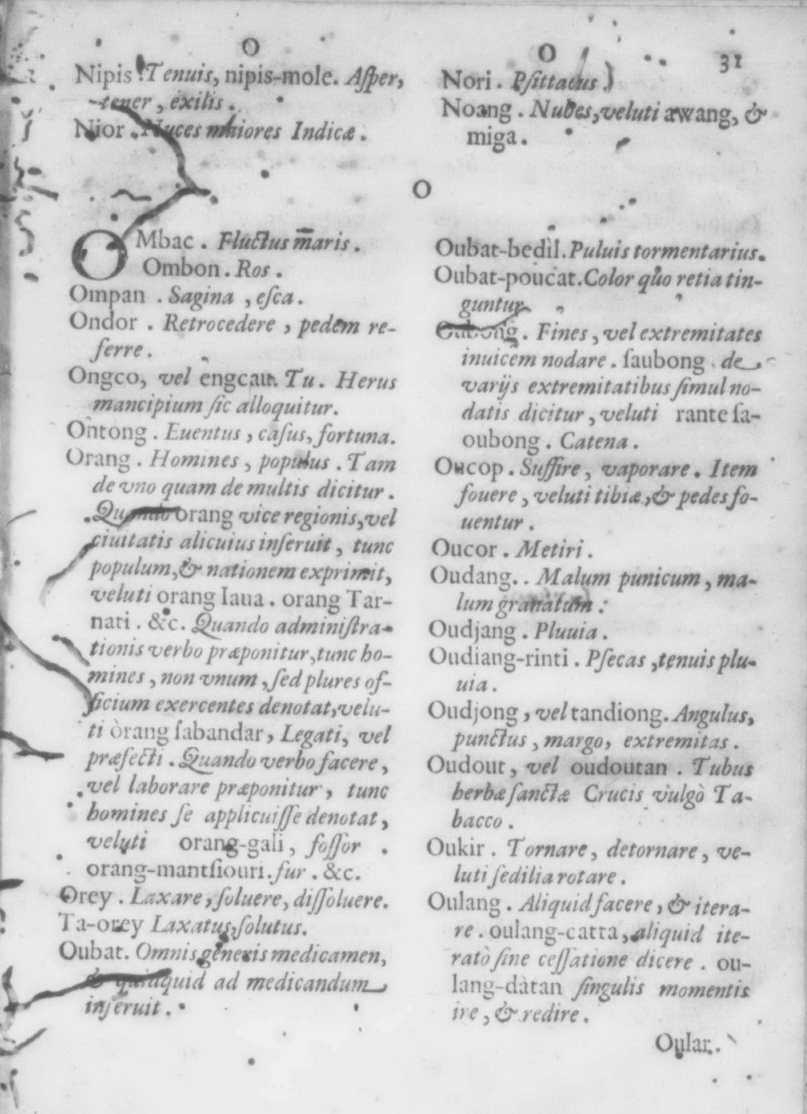 O
Nipis. Tenuis, nipis-mole. Aſper,
tener, exilis.
Nior. Nuces maiores Indicæ.
OMbac. Fluctus maris.
Ombon. Ros.
Ompan. Sagina, eſca.
Ondor. Retrocedere, pedem re-
ferre.
Ongco, vel engcau. Tu. Herus
mancipium ſic alloquitur.
Ontong. Euentus, caſus, fortuna.
Orang. Homines, populus. Tam
de vno quam de multis dicitur.
Quando orang vice regionis, vel
ciuitatis alicuius inſeruit, tunc
populum, & nationem exprimit,
veluti orang Iaua. orang Tar-
nati. &c. Quando adminiſtra-
tionis verbo præponitur, tunc ho-
mines, non vnum, ſed plures of-
ficium exercentes denotat, velu-
ti òrang ſabandar, Legati, vel
præfecti. Quando verbo facere,
vel laborare præponitur, tunc
homines ſe applicuiſſe denotat,
veluti orang-gali, foſſor.
orang-mantſiouri. fur. &c.
Orey. Laxare, ſoluere, diſſoluere.
Ta-orey Laxatus, ſolutus.
Oubat. Omnis generis medicamen,
& quidquid ad medicandum
inſeruit.
O 31
Nori. Pſittacus.
Noang. Nubes, veluti awang, &
miga.
O
Oubat-bedìl. Puluis tormentarius.
Oubat-poucat. Color quo retia tin-
guntur.
Oubong. Fines, vel extremitates
inuicem nodare. ſaubong. de
varijs extremitatibus ſimul no-
datis dicitur, veluti rante ſa-
oubong. Catena.
Oucop. Suffire, vaporare. Item
fouere, veluti tibiæ, & pedes fo-
uentur.
Oucor. Metiri.
Oudang.. Malum punicum, ma-
lum granatum.
Oudjang. Pluuia.
Oudiang-rinti. Pſecas, tenuis plu-
uia.
Oudjong, vel tandiong. Angulus,
punctus, margo, extremitas.
Oudout, vel oudoutan. Tubus
herbæ ſanctæ Crucis vulgò Ta-
bacco.
Oukir. Tornare, detornare, ve-
luti ſedilia rotare.
Oulang. Aliquid facere, & itera-
re. oulang-catta, aliquid ite-
ratò ſine ceſſatione dicere. ou-
lang-dàtan ſingulis momentis
ire, & redire.
Oular.